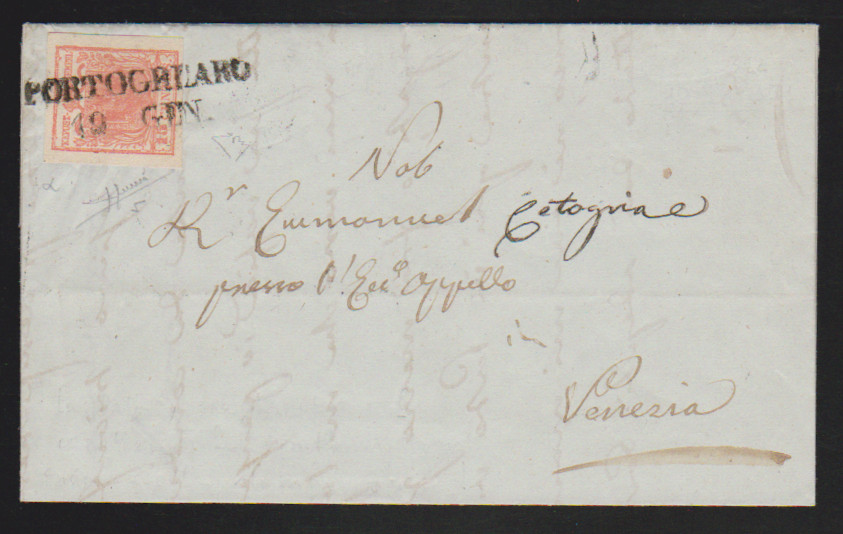 PORTOGRUARO
19 GEN.
Nob
Emmanuel Cetogna
presso l'Ecc.º Appello
in
Venezia